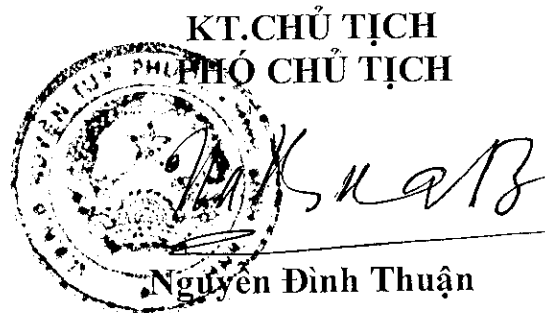 KT.CHỦ TỊCH
PHÓ CHỦ TỊCH
Nguyễn Đình Thuận